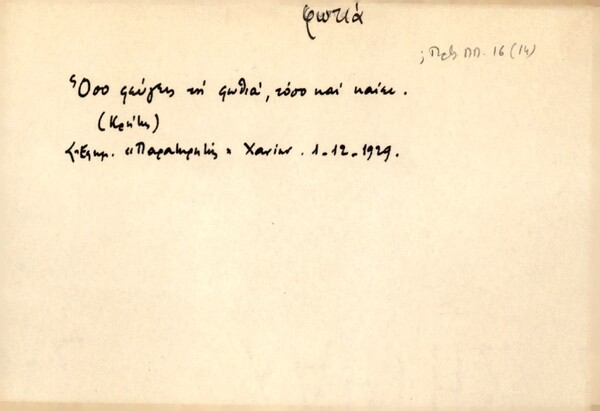 φωτιά
; Πρβ ΠΠ. 16 (14)
Ὅσο φεύγεις τή φωθιά, τόσο καί καίει.
(Κρήτης)
Ἐφημ. «Παρατηρητής» Χανίων. 1-12-1929.